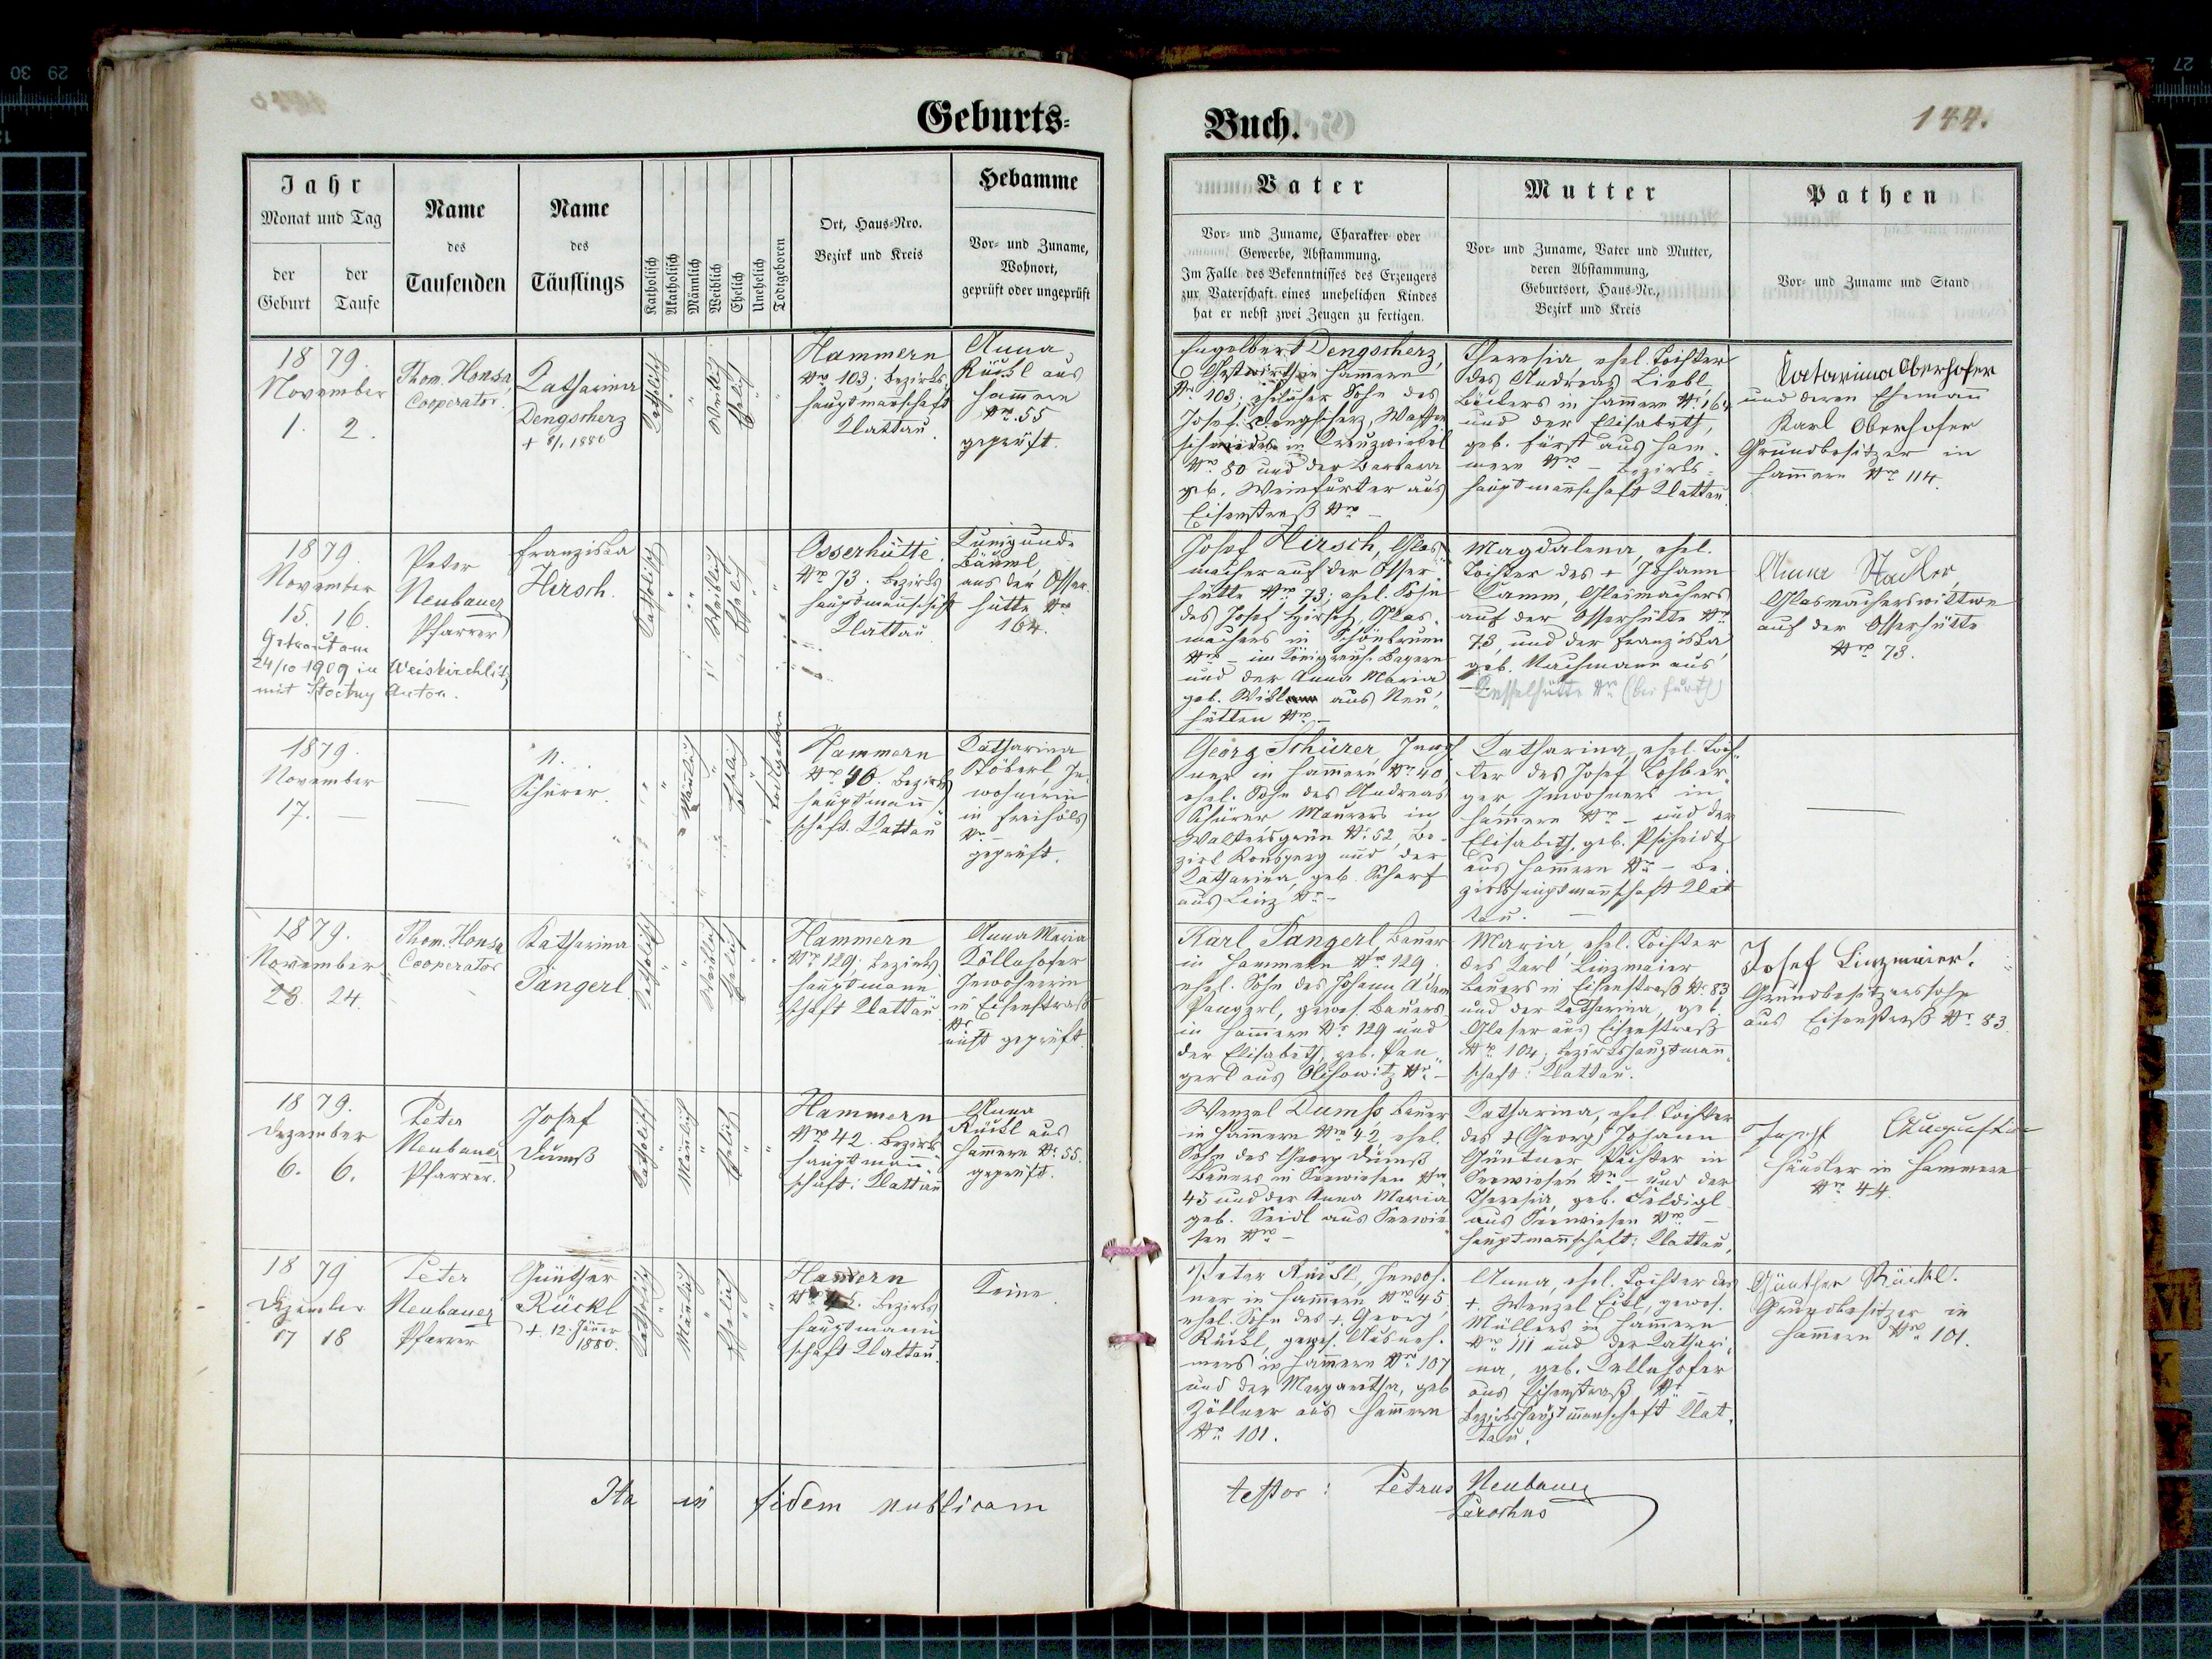 Geburts-
Buch.
144.
Jahr
Monat und Tag
der Geburt
der Taufe
Name
des
Taufenden
Name
des
Täuflings
Katholisch
Akatholisch
Männlich
Weiblich
Ehelich
Unehelich
Todtgeboren
Ort, Haus-Nro.
Bezirk und Kreis
Hebamme
Vor- und Zuname,
Wohnort,
geprüft oder ungeprüft
Vater
Vor- und Zuname, Charakter oder
Gewerbe, Abstammung.
Im Falle des Bekenntnisses des Erzeugers
zur Vaterschaft eines unehelichen Kindes
hat er nebst zwei Zeugen zu fertigen.
Mutter
Vor- und Zuname, Vater und Mutter,
deren Abstammung,
Geburtsort, Haus-Nr.,
Bezirk und Kreis
Pathen
Vor- und Zuname und Stand
1879.
November
1. 2.
Thom. Honsa,
Cooperator.
Katharina
Dengscherz
Katholisch
Weiblich
Ehelich
Hammern
Nro 103; Bezirks-
hauptmannschaft
Klattau.
Anna
Rückl aus
Hammern
Nro 55
geprüft.
Engelbert Dengscherz,
Gastwirth in Hammern
Nro 103; ehelicher Sohn des
Josef Dengscherz, Waffen-
schmiedes in Kreuzwinkel
Nro 80 und der Barbara
geb. Weinfurter aus
Eisenstraß Nro –
Theresia ehel. Tochter
des Andreas Liebl
Bäckers in Hammern
und der Elisabeth,
geb. Fürst aus Ham-
mern Nro – Bezirks-
hauptmannschaft Klattau
Katarina Oberhofer
und deren Ehemann
Karl Oberhofer
Grundbesitzer in
Hammern Nro 114.
1879
November
15. 16.
Getraut am
24/10 1909 in Weiskirchlitz
mit Anton.
Peter
Neubauer
Pfarrer
Franziska
Hirsch.
Katholisch
Weiblich
Ehelich
Osserhütte.
Nro 73. Bezirks
hauptmannschaft
Klattau.
Kunigunde
Bäuml,
aus der Osser-
hütte Nro
164.
Josef Hirsch, Glas-
macher auf der Osser-
hütte Nro 73; ehel. Sohn
des Josef Hirsch, Glas-
machers in Schönbrunn
Nro – im Königreich Bayern
und der Anna Maria
geb. aus Neu-
hütten Nro –
Magdalena, ehel.
Tochter des + Johann
Lamm, Glasmachers
auf der Osserhütte Nro
73, und der Franziska,
geb. Nachmann aus
(bei Furth)
Anna Stadler,
Glasmacherswittwe
auf der Osserhütte
Nro 73.
1879.
November
17. –
–
N.
Schürer.
Männlich
Ehelich
Todtgeboren
Hammern
Nro 40. Bezirks
hauptmann
schaft. Klattau
Katharina
Stöberl, In-
wohnerin
in Freihöls
Nro –
geprüft.
Georg Schürer, Inwoh-
ner in Hammern Nro 40,
ehel. Sohn des Andreas
Schürer Maurers in
Waltersgrün Nro 52, Be-
zirk Ronsperg und der
Katharina, geb. Scharf
aus Linz Nro –
Katharina, ehel. Toch-
ter des Josef Lohber-
ger, Inwohners in
Hammern Nro – und der
Elisabeth, geb. Pscheidt
aus Hammern Nro – Be-
zirkshauptmannschaft Klat-
tau. –
–
1879.
November
23. 24.
Thom. Honsa
Cooperator
Katharina
Pangerl
Katholisch
Weiblich
Ehelich
Hammern
Nro 129; Bezirks
hauptmann
schaft Klattau
Anna Maria
Köllnhofer
Inwohnerin
in Eisenstraß
Nro
nicht geprüft.
Karl Pangerl, Bauer
in Hammern Nro 129.
ehel. Sohn des Johann Adam
Pangerl, gewes. Bauers
in Hammern Nro 129 und
der Elisabeth, geb. Pan-
gerl aus Olchowitz Nro –
Maria ehel. Tochter
des Karl Linzmaier
Bauers in Eisenstraß Nro 83
und der Katharina, geb.
Glaser aus Eisenstraß
Nro 104; Bezirkshauptmann-
schaft: Klattau.
Josef Linzmaier.
Grundbesitzerssohn
aus Eisenstraß Nro 83.
1879.
Dezember
6. 6.
Peter
Neubauer
Pfarrer.
Josef
Dumß
Katholisch
Männlich
Ehelich
Hammern
Nro 42. Bezirks
hauptmann-
schaft: Klattau
Anna
Rückl aus
Hammern Nro 55.
geprüft.
Wenzel Dumß Bauer
in Hammern Nro 42, ehel.
Sohn des Georg Dumß
Bauers in Seewiesen Nro
45 und der Anna Maria
geb. Seidl aus Seewie-
sen Nro –
Katharina, ehel Tochter
des + (Georg) Johann
Güntner in
Seewiesen Nro – und der
Theresia, geb.
aus Seewiesen Nro –
hauptmannschaft: Klattau,
Josef Augustin
Häusler in Hammern
Nro 44.
1879
Dezember
17 18
Peter
Neubauer
Pfarrer
Günther
Rückl
+. 12. Jänner
1880.
Katholisch
Männlich
Ehelich
Hammern
Nro 45. Bezirks
hauptmann
schaft Klattau.
Keine.
Peter Rückl, Inwoh-
ner in Hammern Nro 45,
ehel. Sohn des +. Georg
Rückl, gewes. Ausneh-
mers in Hammern Nro 107
und der Margaretha, geb
Zöllner aus Hammern
Nro 101.
Anna, ehel. Tochter des
+. Wenzel Eitl, gewes.
Müllers in Hammern
Nro 111 und der Kathari-
na, geb. Kellnhofer
aus Eisenstraß Nro –
Bezirkshauptmannschaft Klat-
tau.
Günther Rückl.
Grundbesitzer in
Hammern Nro 101.
Ita in fidem publicam
testor: Petrus Neubauer
Parochus